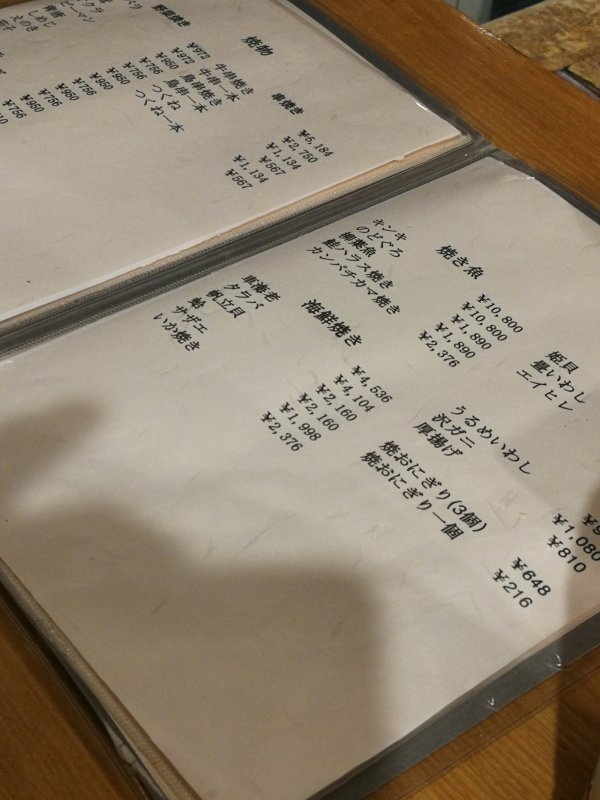 焼物
串焼き
牛串焼き ¥5,184
牛串一本 ¥2,750
鳥串焼き ¥1,134
鳥串一本 ¥567
つくね ¥1,134
つくね一本 ¥567
野菜焼き
¥972
¥972
¥950
¥756
¥950
¥756
¥950
¥756
¥950
ピーマン
しめじ
えのき
焼き魚
キンキ ¥10,800
のどぐろ ¥10,800
柳葉魚 ¥1,890
鮭ハラス焼き ¥1,890
カンパチカマ焼き ¥2,376
海鮮焼き
車海老 ¥4,536
タラバ ¥4,104
帆立貝 ¥2,160
蛤 ¥2,160
サザエ ¥1,998
いか焼き ¥2,376
姫貝
畳いわし
エイヒレ
うるめいわし
沢ガニ ¥1,080
厚揚げ ¥810
焼おにぎり(3個) ¥648
焼おにぎり一個 ¥216